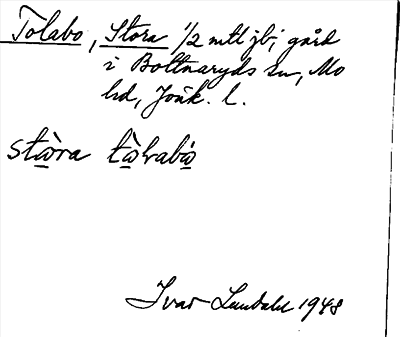 Tolabo, Stora 1/2 mtl jb; gård
i Bottnaryds sn, Mo
hd, Jönk. l.
stòra tòlrabò
Ivar Lundahl 1948